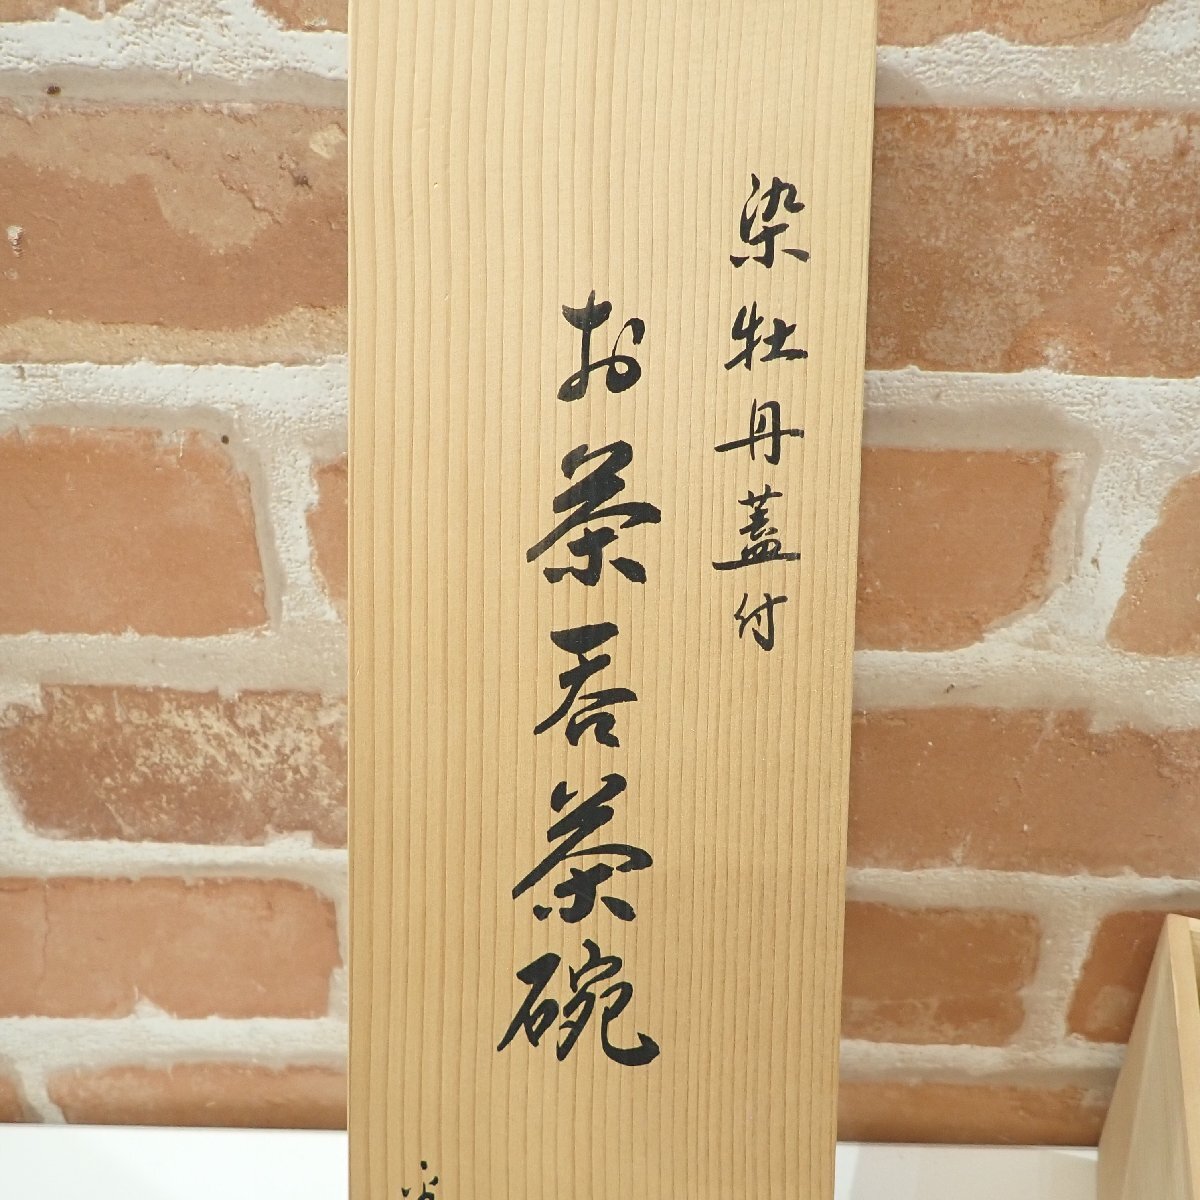 染牡丹蓋付
お茶呑茶碗